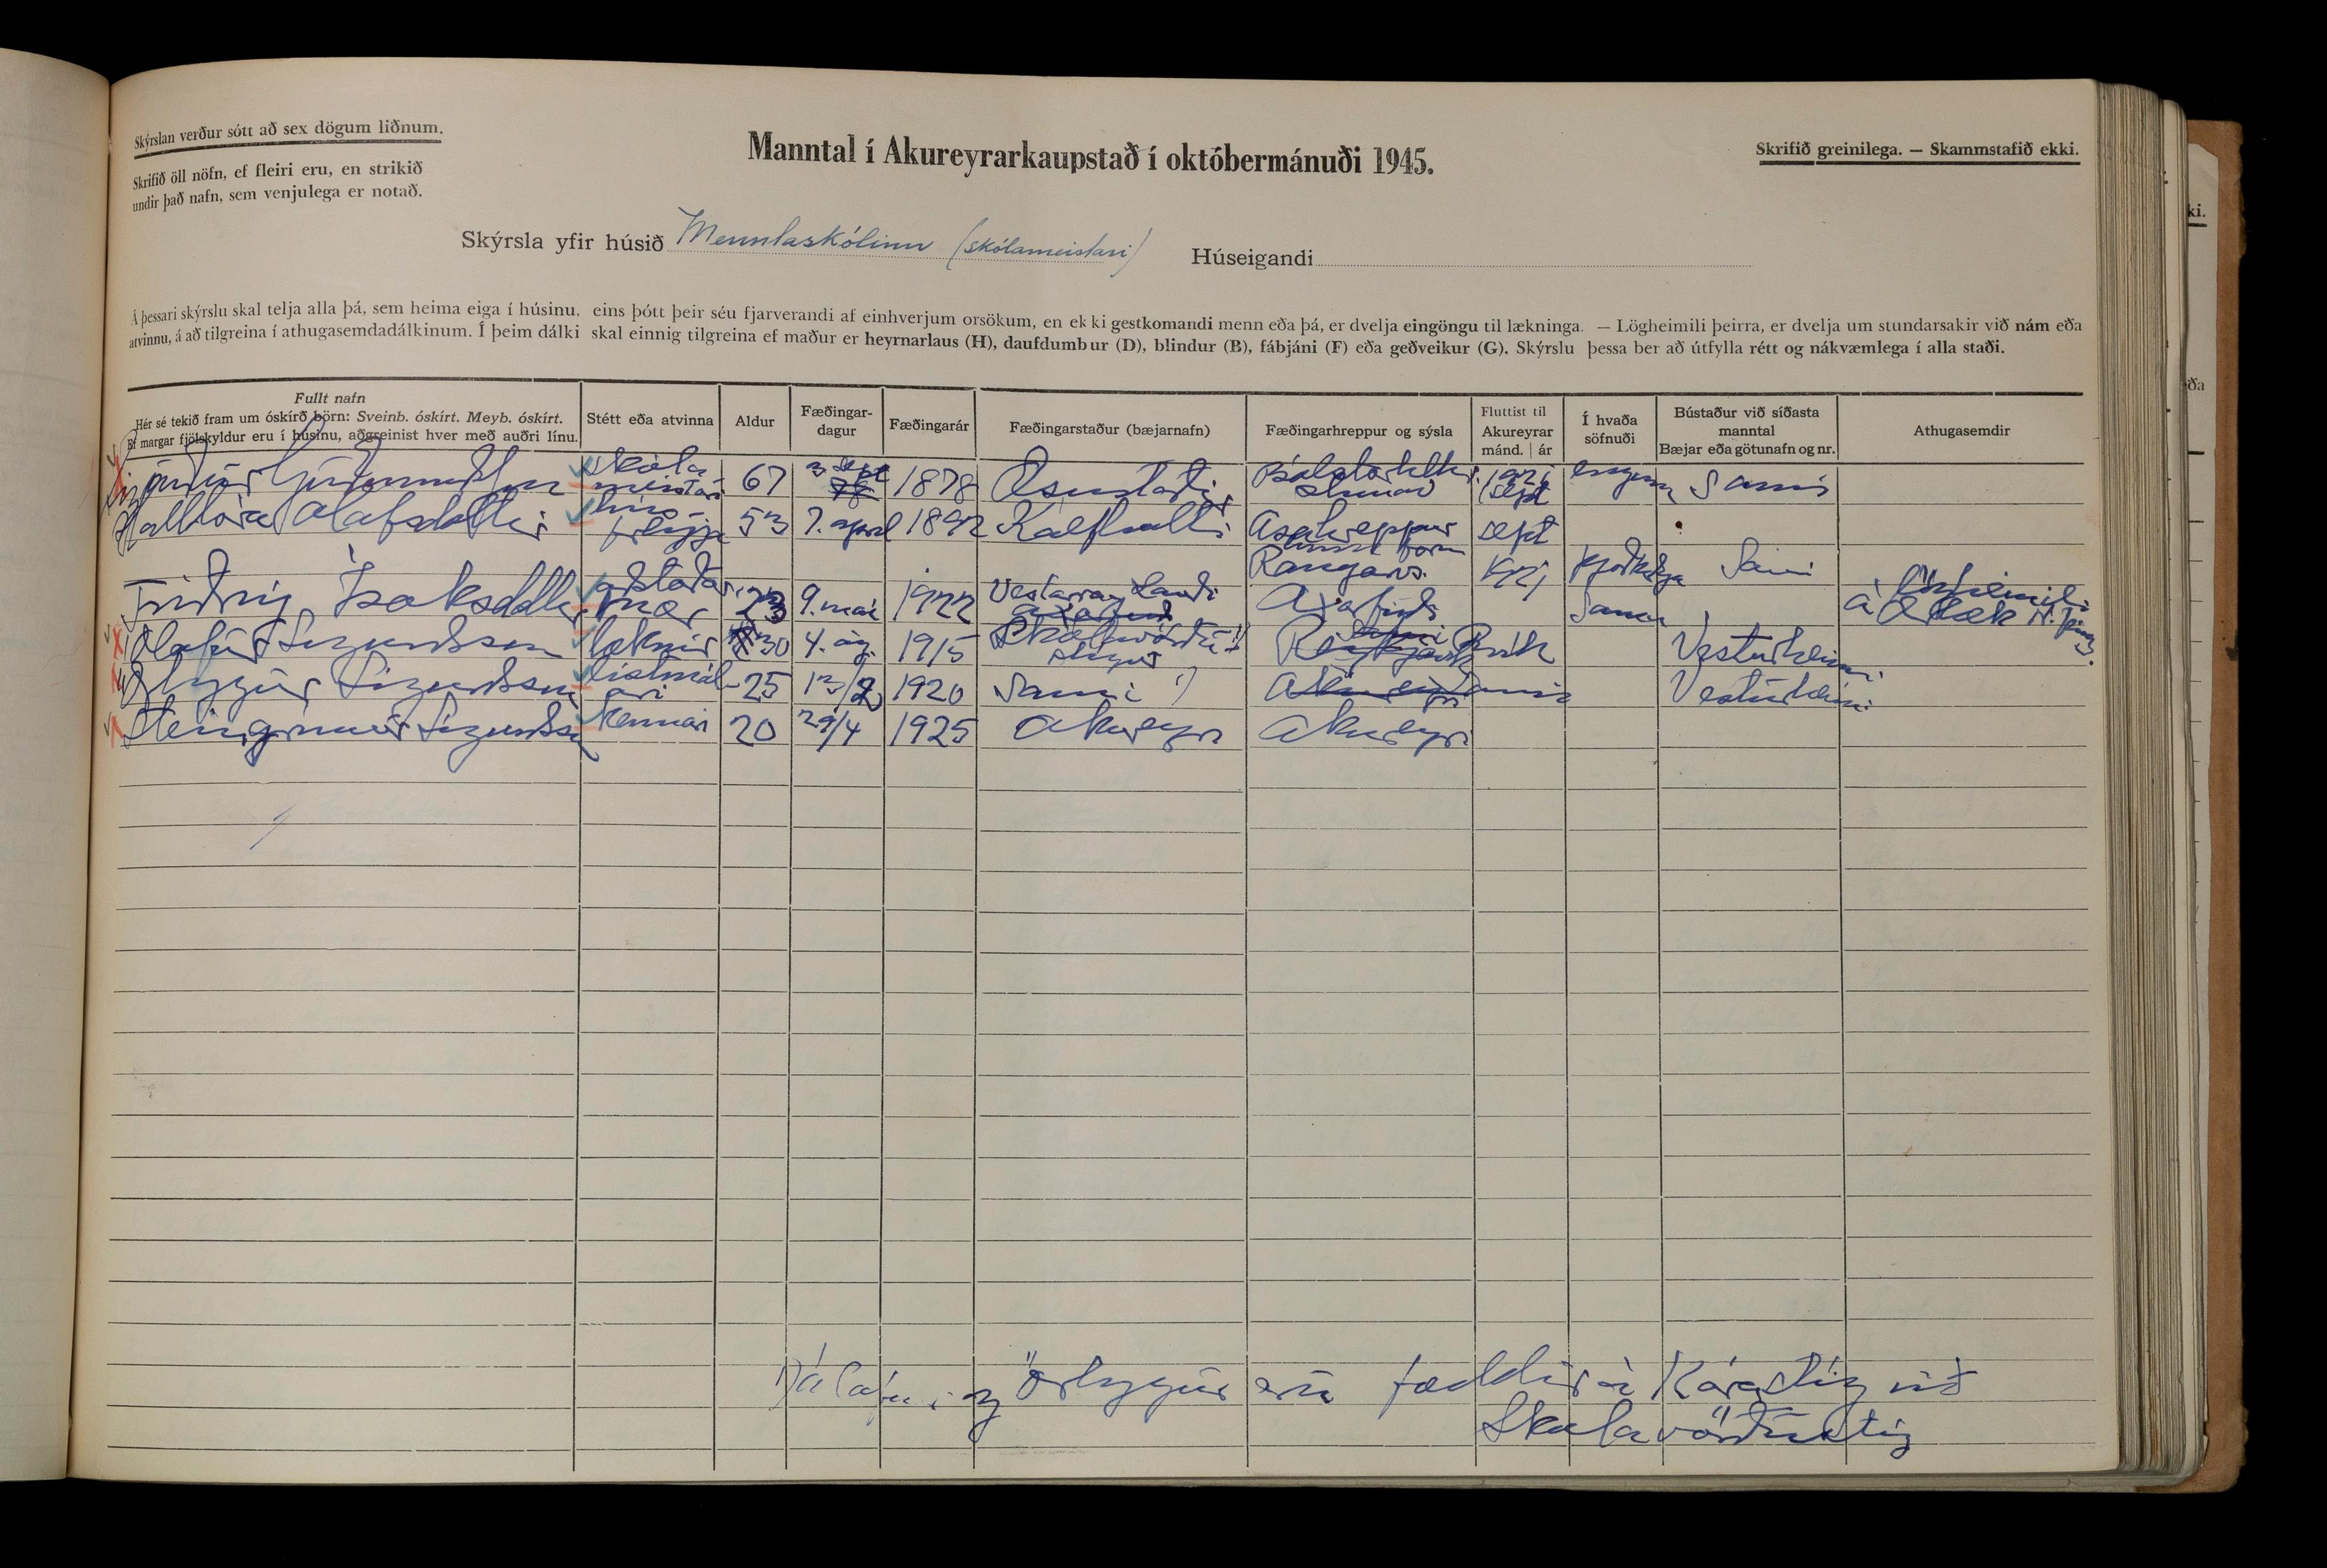 Skýrslan verður sótt að sex dögum liðnum.
Skrifið öll nöfn, ef fleiri eru, en strikið
undir það nafn, sem venjulega er notað.
Manntal í Akureyrarkaupstað í októbermánuði 1945.
Skrifið greinilega. — Skammstafið ekki.
Skýrsla yfir húsið Menntaskólinn (skólameistari) Húseigandi
Á þessari skýrslu skal telja alla þá, sem heima eiga í húsinu, eins þótt þeir séu fjarverandi af einhverjum orsökum, en ekki gestkomandi menn eða þá, er dvelja eingöngu til lækninga. — Lögheimili þeirra, er dvelja um stundarsakir við nám eða
atvinnu, á að tilgreina í athugasemdadálkinum. Í þeim dálki skal einnig tilgreina ef maður er heyrnarlaus (H), daufdumbur (D), blindur (B), fábjáni (F) eða geðveikur (G). Skýrslu þessa ber að útfylla rétt og nákvæmlega í alla staði.
Fullt nafn
Hér sé tekið fram um óskírð börn: Sveinb. óskírt. Meyb. óskírt.
Ef margar fjölskyldur eru í húsinu, aðgreinist hver með auðri línu.
Stétt eða atvinna
Aldur
Fæðingar-
dagur
Fæðingarár
Fæðingarstaður (bæjarnafn)
Fæðingarhreppur og sýsla
Fluttist til
Akureyrar
mánd. | ár
Í hvaða
söfnuði
Bústaður við síðasta
manntal
Bæjar eða götunafn og nr.
Athugasemdir
Sigurður Guðmundsson skólameistari 67 3 sept 1878 Æsustaðir 1921 sept engum Sami
Halldóra Ólafsdóttir hús- freyja 53 7. apríl 1892 Kálfholti Ásahreppur Rangárvs. sept 1921 Þjóðkirkja Sami
Friðný Ísaksdóttir aðstoðar mær 23 9. maí 1922 Vestara Landi Axarfirði Sama lögheimili á Ás læk N. Þing.
Ólafur Sigurðsson læknir 30 4. ág. 1915 Skólavörðu- stígur 1) Reykjavík Rvík Vesturheimi
Örlygur Sigurðsson listmál- ari 25 13/2 1920 Sami 1) Akureyri Sami Vesturheimi
Steingrímur Sigurðsson kennari 20 29/4 1925 Akureyri Akureyri
1) Ólafur og Örlygur eru fæddir á Kárastíg við
Skólavörðustíg